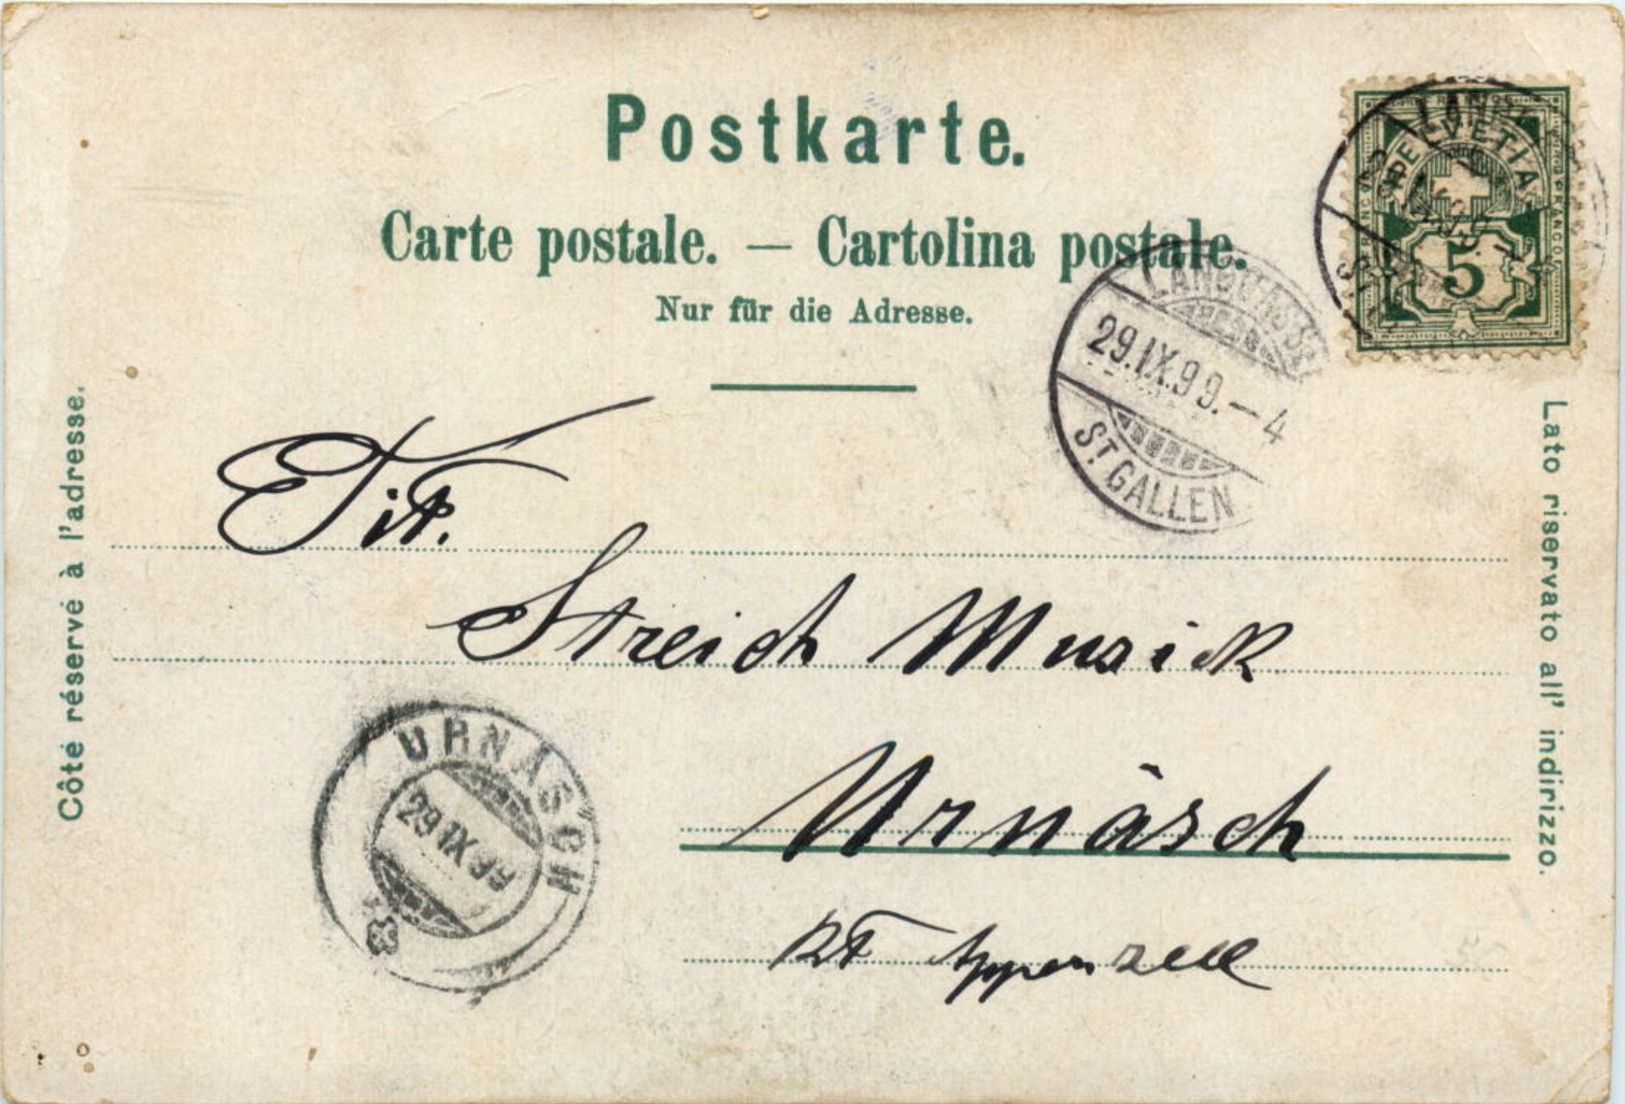 Postkarte.
Carte postale. — Cartolina postale.
Nur für die Adresse.
HELVETIA
FRANCO
5
29.IX.99.–4
ST. GALLEN
Côté réservé à l'adresse.
Lato riservato all' indirizzo.
Tit.
Streich Musick
Urnäsch
Kt Appenzell
URNÄSCH
29 IX 99
50